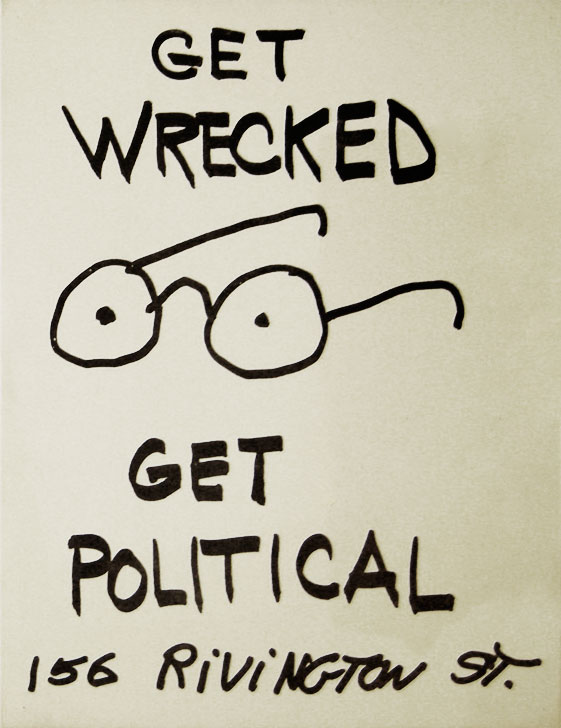 GET
WRECKED
GET
POLITICAL
156 RiViNGTON ST.